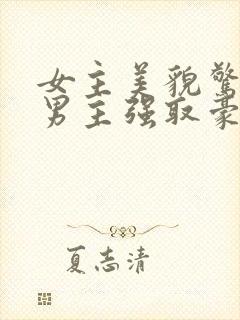 女主美貌驚
男主强取豪
夏志清